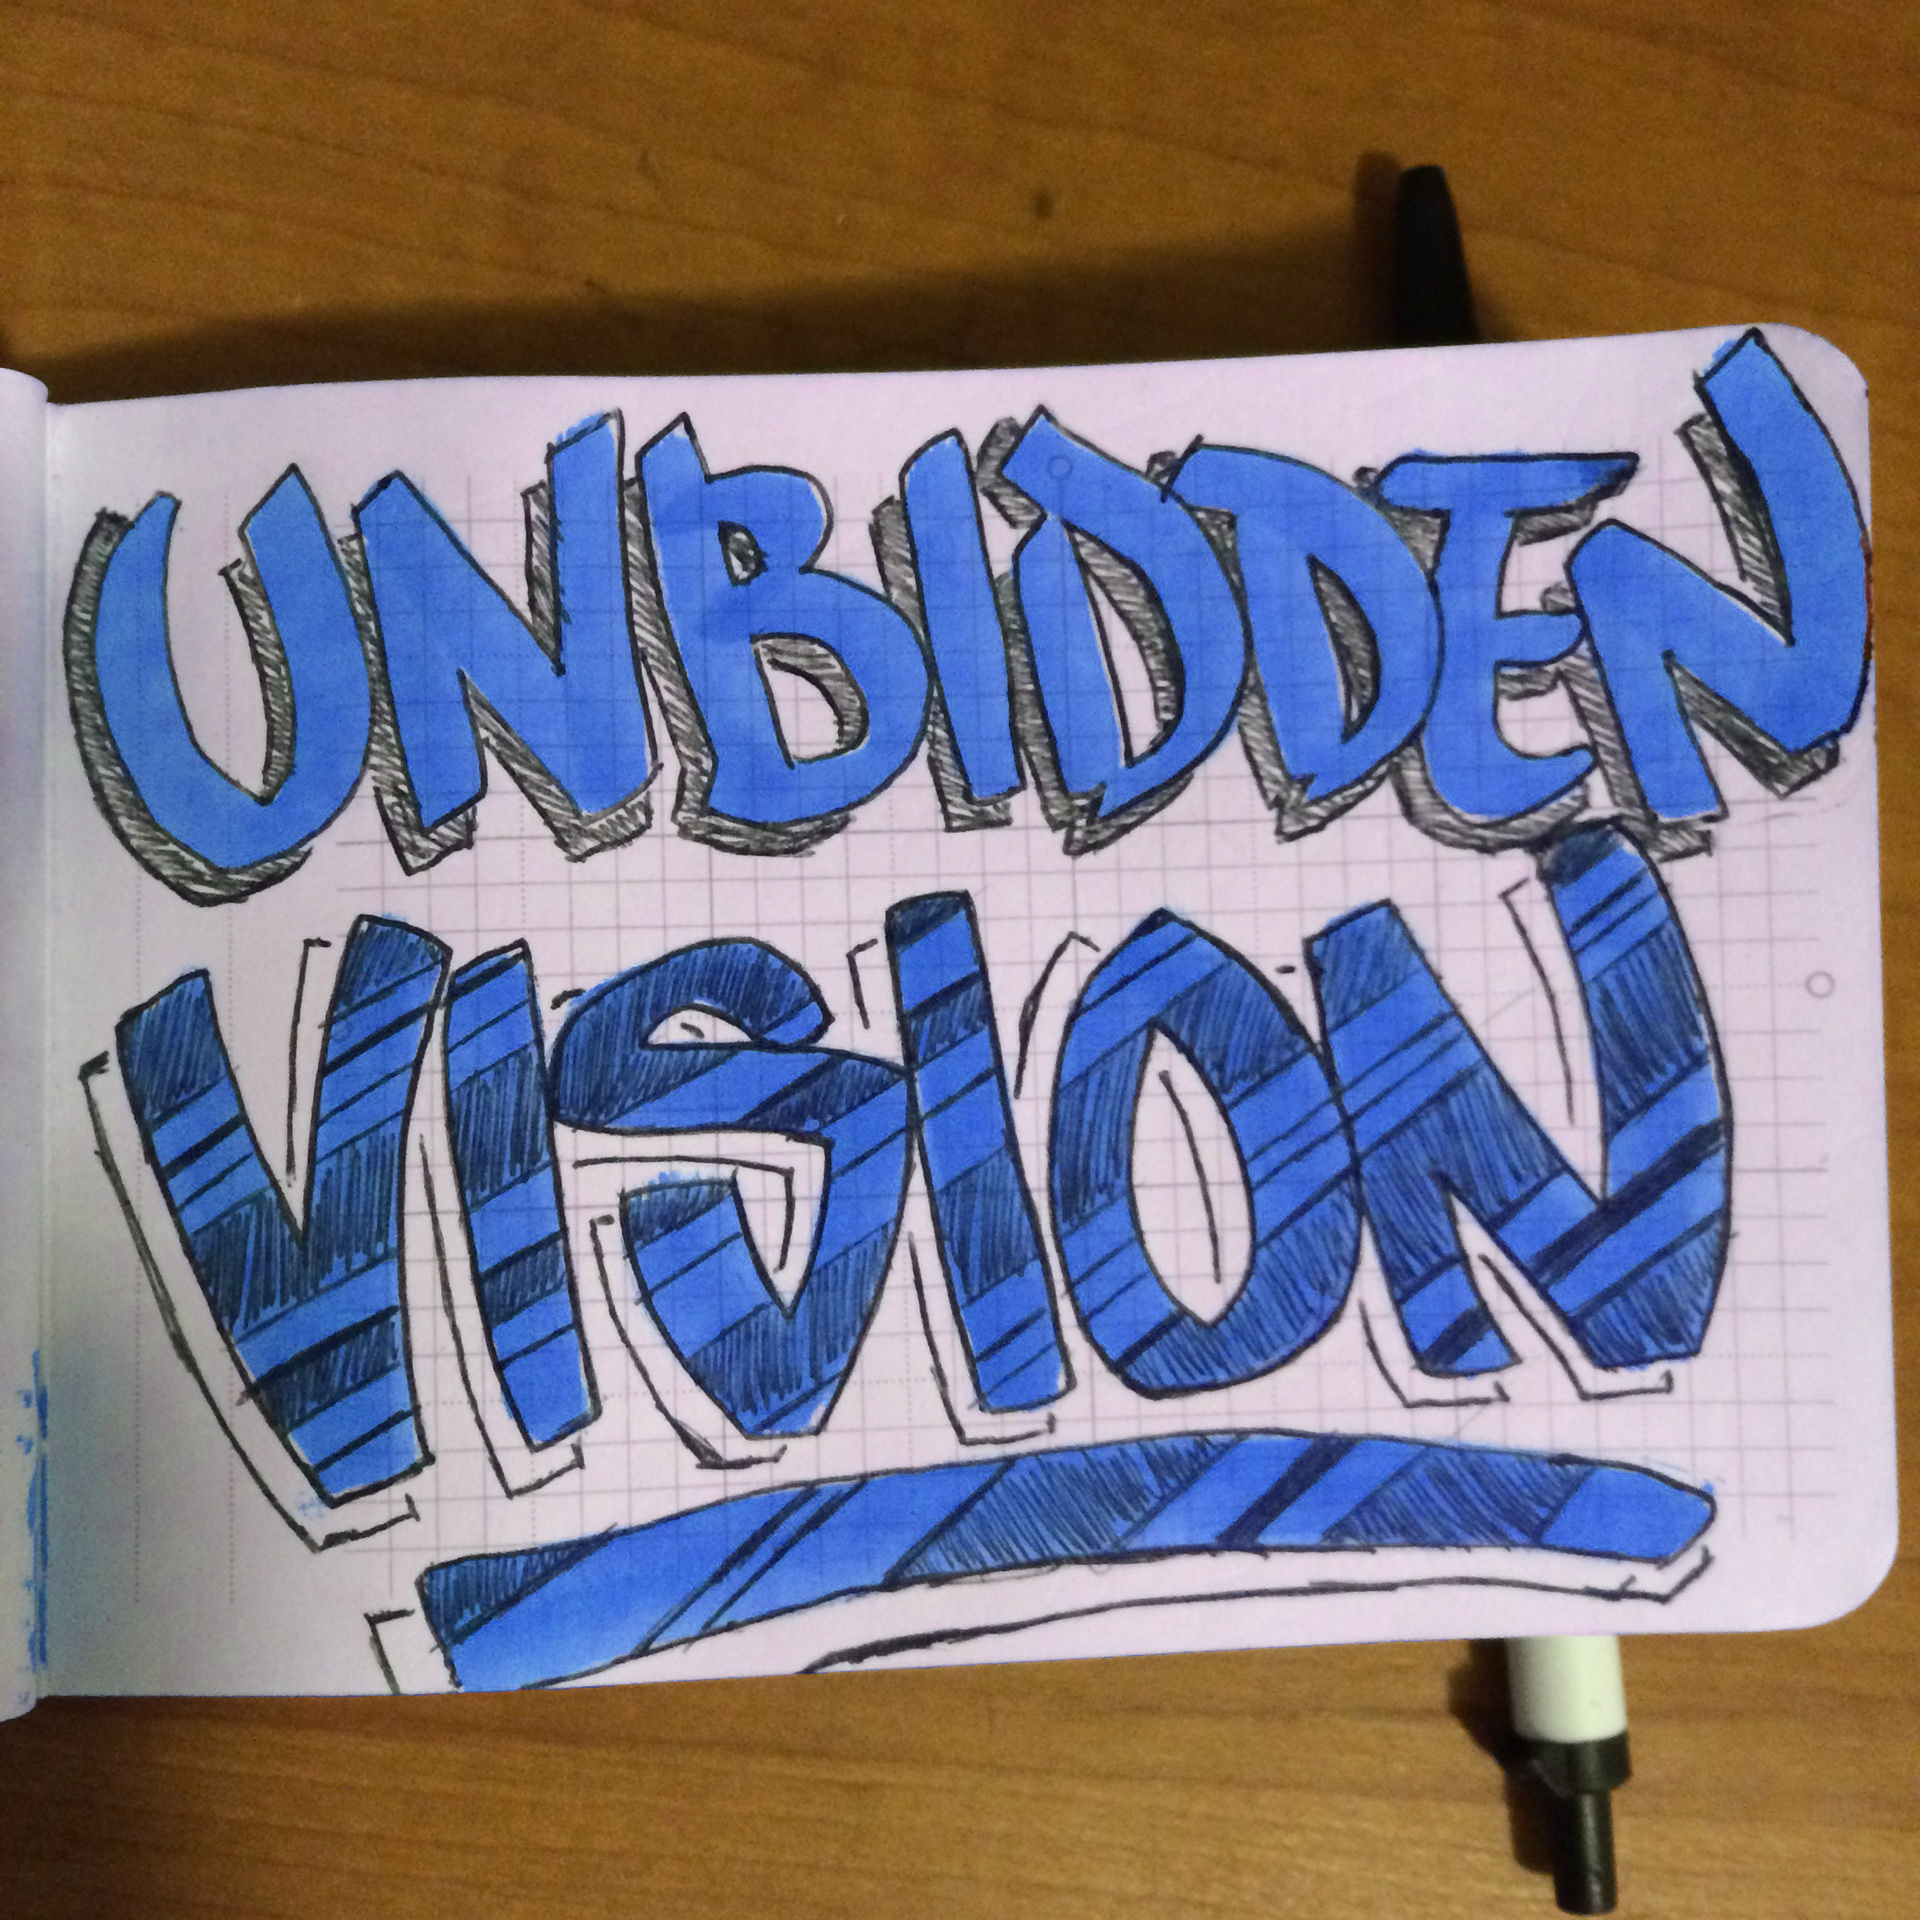 UNBIDDEN
VISION